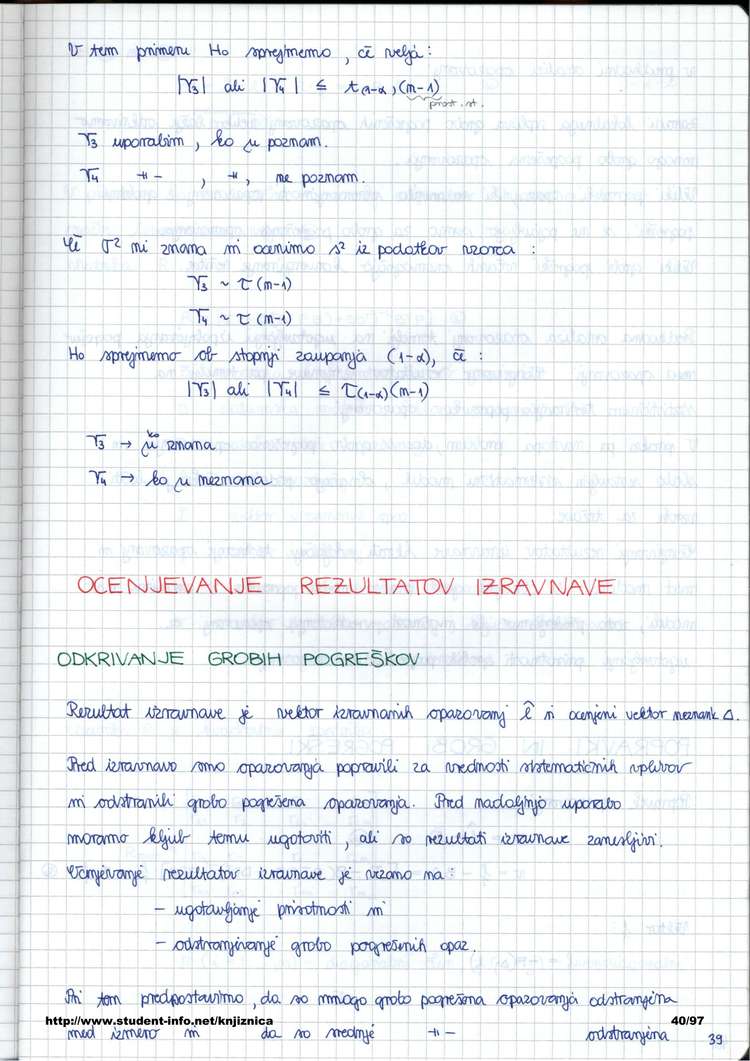 V tem primeru Ho sprejmemo, če velja:
|T₃| ali |T₄| ≤ t(1-α), (m-1)
prost. st.
T₃ uporabim, ko μ poznam.
T₄ -||- , -||-, ne poznam.
Če σ² ni znana in ocenimo s² iz podatkov vzorca :
T₃ ~ τ (m-1)
T₄ ~ τ (m-1)
Ho sprejmemo ob stopnji zaupanja (1-α), če :
|T₃| ali |T₄| ≤ τ(1-α)(m-1)
T₃ → ko μ znana
T₄ → ko μ neznana
OCENJEVANJE REZULTATOV IZRAVNAVE
ODKRIVANJE GROBIH POGREŠKOV
Rezultat izravnave je vektor izravnanih opazovanj l̂ in ocenjeni vektor neznank Δ.
Pred izravnavo smo opazovanja popravili za vrednosti sistematičnih vplivov
in odstranili grobo pogrešena opazovanja. Pred nadaljnjo uporabo
moramo kljub temu ugotoviti, ali so rezultati izravnave zanesljivi.
Ocenjevanje rezultatov izravnave je vezano na :
- ugotavljanje prisotnosti in
- odstranjevanje grobo pogrešenih opaz.
Pri tem predpostavimo, da so mnogo grobo pogrešena opazovanja odstranjena
http://www.student-info.net/knjiznica
40/97
med izmero in da so srednje -||- odstranjena
39